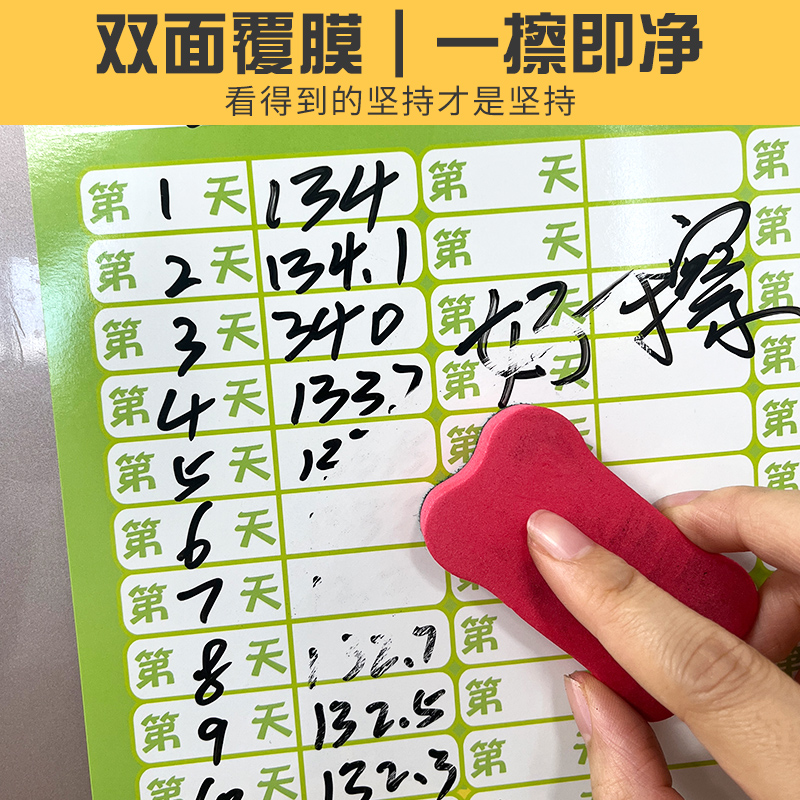 双面覆膜 | 一擦即净
看得到的坚持才是坚持
第 1 天 134 第 天 第
第 2 天 134.1 第 天 第
第 3 天 340 第 天 第
第 4 天 133.7 第 天 第
第 5 天 第 第
第 6 天
第 7 天
第 8 天 132.7 第
第 9 天 132.5 第
第 10 天 132.3 第 天
好擦